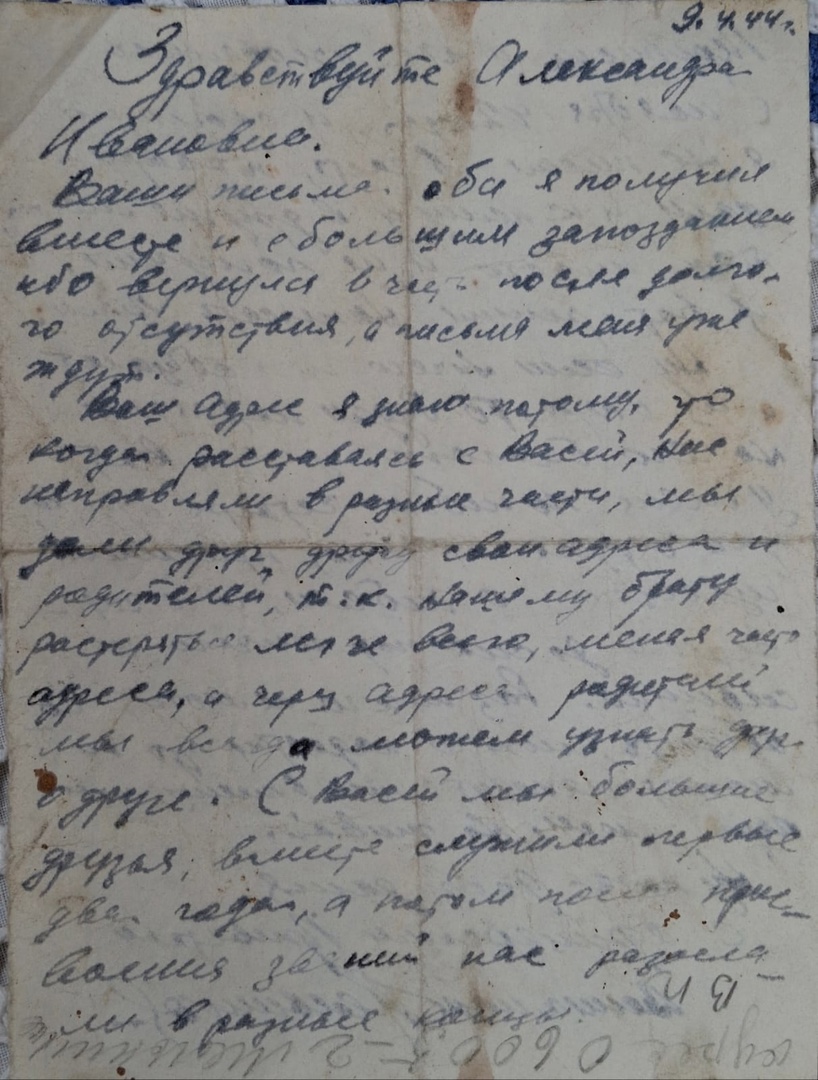 9.4.44 г.
Здравствуйте Александра
Ивановна.
Ваши письма оба я получил
вместе и с большим запозданием
ибо вернулся в часть после долго-
го отсутствия, а письма меня уже
ждут.
Ваш адрес я знаю потому, что
когда расставаясь с Васей, нас
направляли в разные части, мы
дали друг другу свои адреса и
родителей, т.к. нашему брату
растеряться легче всего, меняя часто
адреса, а через адреса родителей
мы всегда можем узнать друг
о друге. С Васей мы большие
друзья, вместе служили первые
два года, а потом после прис-
воения званий нас разосла-
ли в разные концы.